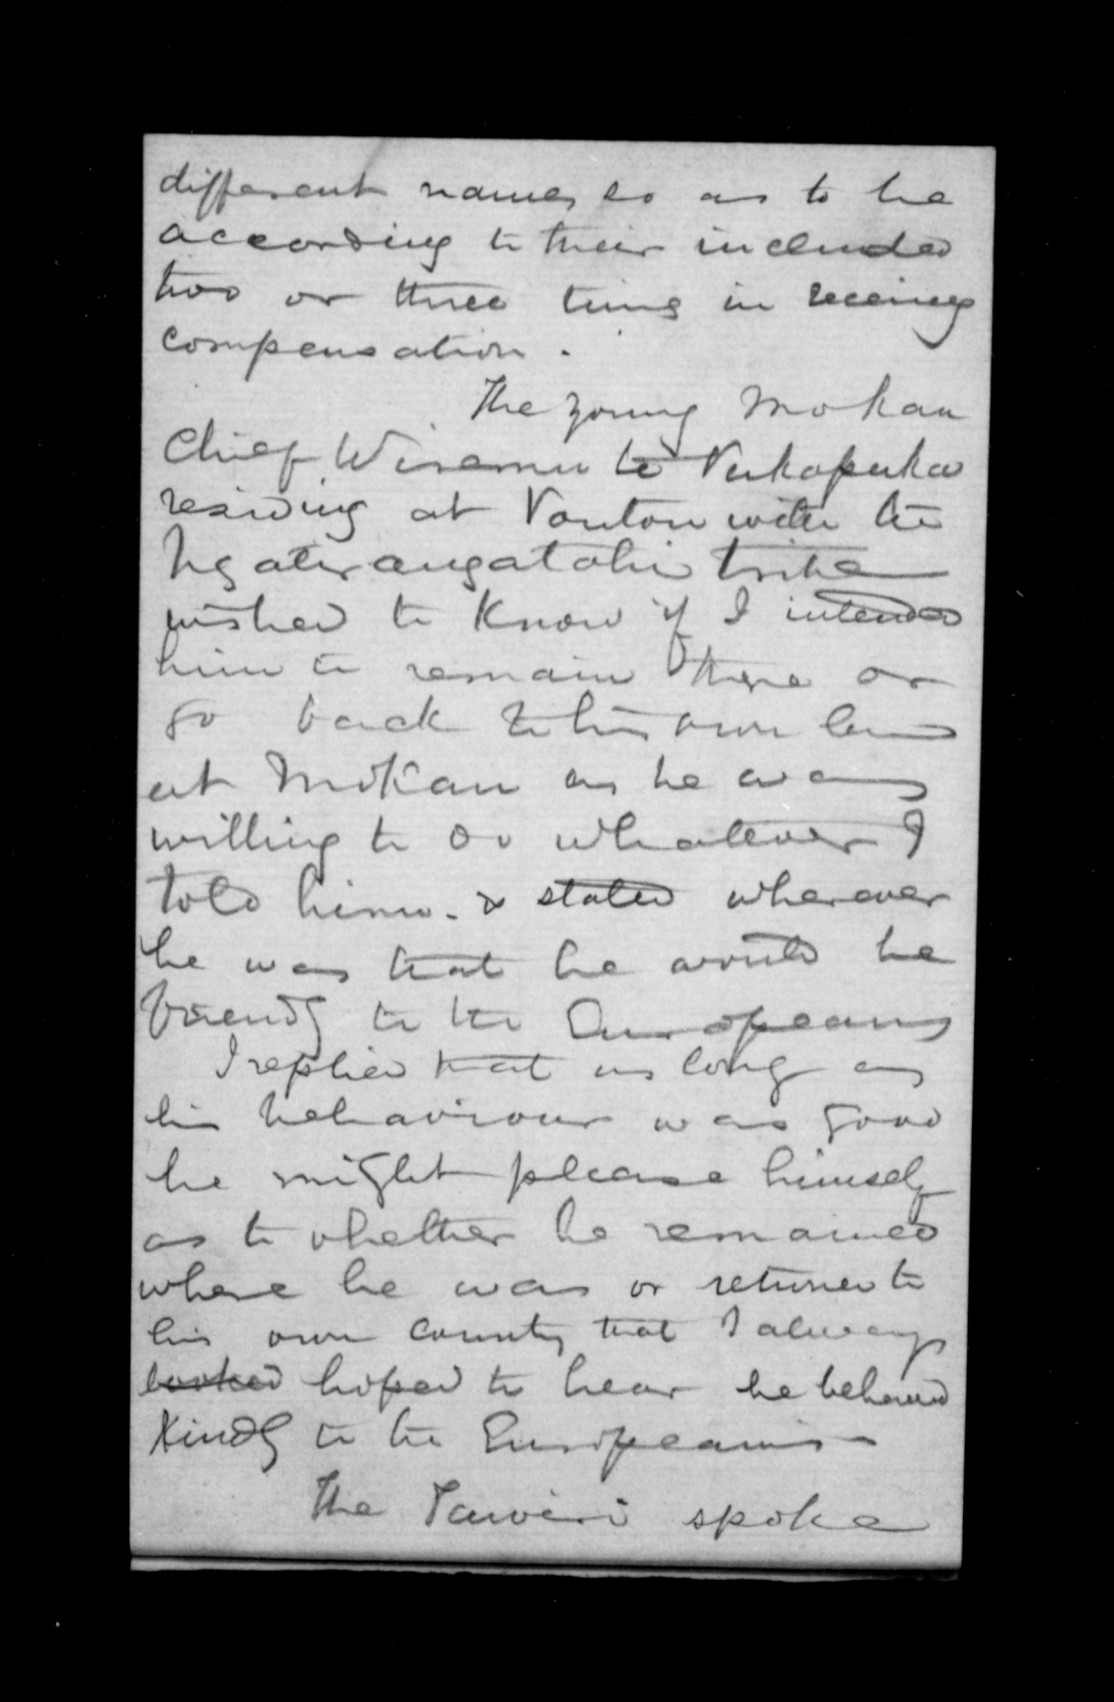 different names so as to be
according to their included
two or three times in receiving
compensation.
The young Mokau
Chief Wiremu te
residing at with the
tribe
wished to know if I intended
him to remain there or
go back to his own land
at Mokau as he was
willing to do whatever I
told him. & stated wherever
he was that he would be
friendly to the Europeans
I replied that as long as
his behaviour was good
he might please himself
as to whether he remained
where he was or returned to
his own country that I always
looked hoped to hear he behaved
kindly to the Europeans -
The spoke